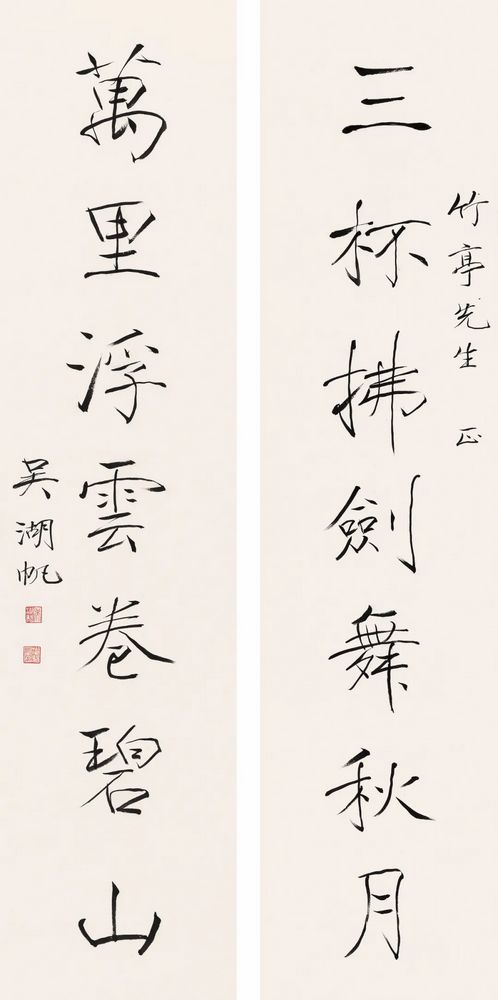 竹亭先生 正
三杯拂劍舞秋月
萬里浮雲卷碧山
吳湖帆